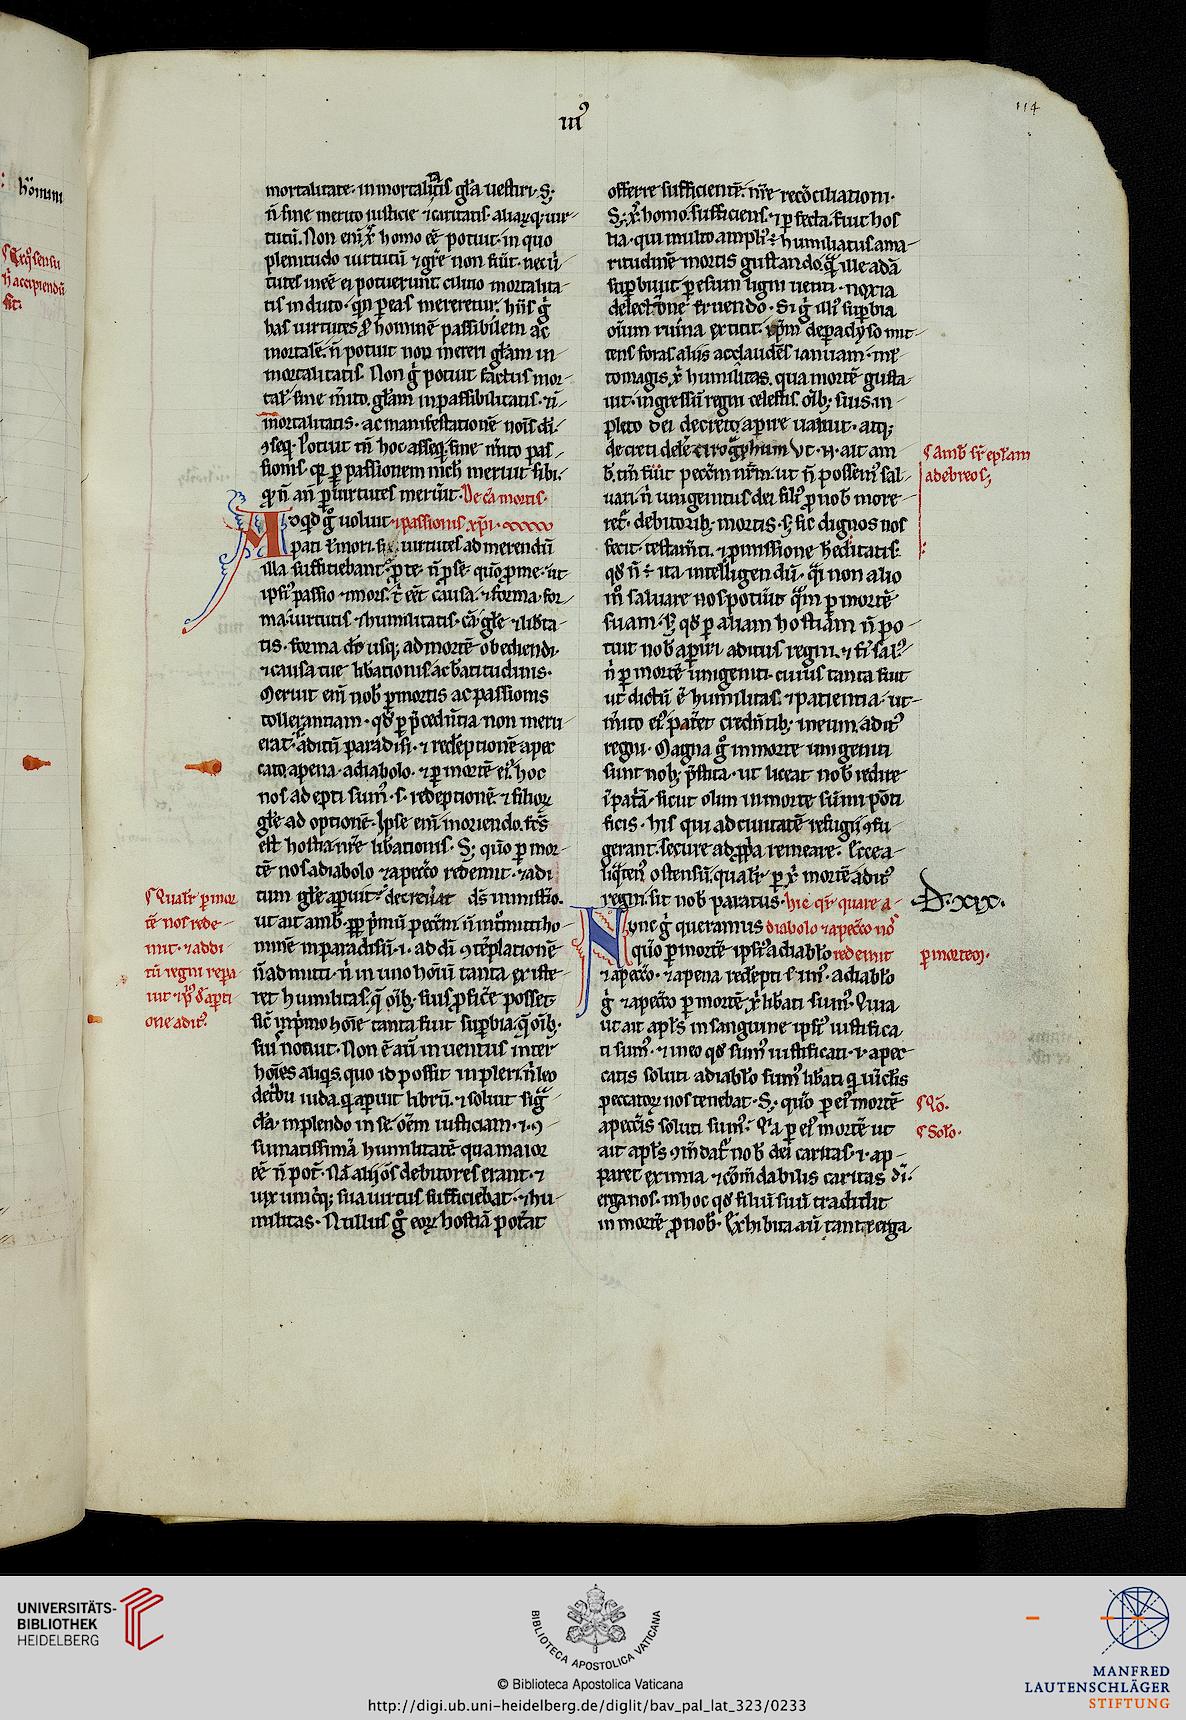 iiiꝰ
114
mortalitate. inmortalitatis gl̄a uestiri. S;
n̄ sine merito iusticie ⁊ caritatis. aliarūq; uir-
tutū. Non enī x̄ homo ēē potuit. in quo
plenitudo uirtutū ⁊ gr̄e non fūit. nec ui
tutes inēē ei potuerunt. cū uero mortalita-
tis induto. qn̄ p eas mereretur. hn̄s ḡ
has uirtutes ꝓ hominē passibilem ac
mortalē. n̄ potuit non mereri gl̄am in-
mortalitatis. Non ḡ potuit factus mor-
talꝰ. sine m̄ito. gl̄am inpassibilitatis. ⁊ i-
mortalitatis. ac manifestationē noīs di-
ꝯseq̇. Potuit tn̄ hoc asseq̇. sine m̄ito pas-
sionis. qꝛ ꝑ passionem nich̄ meruit sibi.
qd̄ n̄ an̄ ꝑ uirtutes meru̅it. De cā mortis.
Ad qd̄ ḡ uoluit ⁊ passionis xp̄i.
pati ⁊ mori. si uirtutes ad merendū
illa sufficiebant. ꝓ te. n̄ ꝓ se. quō ꝓ me. ut
ipsiꝰ passio ⁊ mors. t̄ eēt causa. ⁊ forma. for-
ma uirtutis. ⁊ humilitatis. cā gl̄e ⁊ lib̄ta-
tis. forma do usq; ad mortē obediendi.
⁊ causa tue lib̄ationis. ac b̄atitudinis.
Meruit enī nob̄ ꝑ mortis ac passionis
tollerantiam. qd̄ ꝑ p̄cedn̄tia non meru-
erat. aditū paradisi. ⁊ red̄eptionē a pec
cato. a pena. a diabolo. ⁊ ꝑ mortē eiꝰ. hoc
nos adepti sumꝰ. s. redeptionē. ⁊ filioꝝ
gl̄e adoptionē. Ipse enī moriendo. fcs̄
est hostia nr̄e lib̄ationis. S; quō ꝑ mor-
tē nos a diabolo ⁊ a pec̄to redemit. ⁊ adi
tum gl̄e apuit. decreu̅at ds̄ in misterio.
ut ait amb̄. ꝓp p̄mū pec̄m. n̄ int̄mitti ho-
minē in paradisū. i. ad di ꝯtēplationē
n̄ admitti. n̄ in uno hoīū tanta existe-
ret humilitas. q̄ oīb; suis ꝓficē posset.
sic̄ in p̄mo hoīe tanta fuit supbia. q̄ oīb;
suis nocuit. Non ē aū inuentus inter
hoīes aliqs. quo id possit inpleri. n̄ leo
de tbu iuda. q̇ apuit librū. ⁊ soluit sig̅
cl̄a. inplendo in se oēm iusticiam. i. ꝯ
sumatissimā humilitatē qua maior
eē n̄ pot̄. Nā alij oēs debitores erant. ⁊
uix unicq; sua uirtus sufficiebat. ⁊ hu-
militas. Nullus ḡ eoꝝ hostiā potat
offerre sufficientē. nr̄e recōciliationi.
S; x̄ homo. sufficiens. ⁊ ꝑfecta. fuit hos
tia. qui multo ampliꝰ ē humiliatus ama-
ritudinē mortis gustando. q̄ ille adā
supbiuit ꝑ esum ligni uetiti. noxia
delectōne fruendo. Si ḡ illiꝰ supbia
oīum ruina extitit. ip̄m de padyso mit-
tens foras. aliis ac claudēs ianuam. ml̄
to magis x̄ humilitas. qua mortē gusta-
uit. ingressū regni celestis. oīb; suis. in-
pleto dei decreto. apire ualuit. atq;
decreti delē cirographum Vt. n. ait am
b. tm̄ fuit pec̄m nr̄m. ut n̄ possemꝰ sal-
uari. n̄ unigenitus dei filiꝰ ꝓ nob̄ more-
ret̄. debitorib; mortis. s; sic dignos nos
fecit. testam̄ti. ⁊ ꝓmissione h̄editatis.
qd̄ n̄ ē ita intelligendū. q̄i non alio
m̊ saluare nos potuit q̄m ꝑ mortē
suam. s; qd̄ ꝑ aliam hostiam n̄ po-
tuit nob̄ aperiri aditus regni. ⁊ fi salꝰ.
n̄ ꝑ mortē unigeniti. cuius tanta fuit
ut dictū ē humilitas. ⁊ patientia. ut-
m̄ito eiꝰ pateret credn̄tib; in eum. aditꝰ
regni. Magna ḡ in morte unigeniti
sunt nob; p̄stita. ut liceat nob̄ redire
ī patiā. sicut olim in morte sūmi pōti
ficis. his qui ad ciuitatē refugii ꝯfu-
gerant. secure ad ꝓpa remeare. Ecce a-
liq̄tenꝰ ostensū. qualr̄ ꝑ x̄ mortē aditꝰ
regni. sit nob̄ paratus. hic qr̄ quare a-
Nunc ḡ queramus diabolo ⁊ a pec̄co nō
quō ꝑ mortē ipsiꝰ a diab̄lo redemit
⁊ a pec̄to. ⁊ a pena red̄epti sumꝰ. a diab̄lo
ḡ ⁊ a pec̄to ꝑ mortē x̄ lib̄ati sumꝰ. Quia
ut ait apl̄s in sanguine ipsiꝰ iustifica
ti sumꝰ. ⁊ in eo qd̄ sumꝰ iustificati. i. a pec-
catis soluti a diab̄lo sumꝰ lib̄ati q̇ uīcl̄is
peccatoꝝ nos tenebat. S; quō ꝑ eiꝰ mortē
a pec̄tis soluti sumꝰ. Qa ꝑ eiꝰ mortē ut
ait apl̄s ꝯm̄dat̄ nob̄ dei caritas. i. ap-
paret eximia ⁊ cōm̄dabilis caritas di.
erga nos. in hoc qd̄ filiū suū tradidit
in mortē ꝓ nob̄. Exhibita aū tante erga
¶ Qualr̄ ꝑ mor
tē nos rede-
mit. ⁊ addi-
tū regni repa
uit
one aditꝰ.
¶ Amb̄. sr̄ epl̄am
ad ebreos;
D. xix.
ꝑ mortē.
¶ Qō.
¶ Solō.
hōinum
UNIVERSITÄTS-
BIBLIOTHEK
HEIDELBERG
BIBLIOTECA APOSTOLICA VATICANA
© Biblioteca Apostolica Vaticana
http://digi.ub.uni-heidelberg.de/diglit/bav_pal_lat_323/0233
MANFRED
LAUTENSCHLÄGER
STIFTUNG